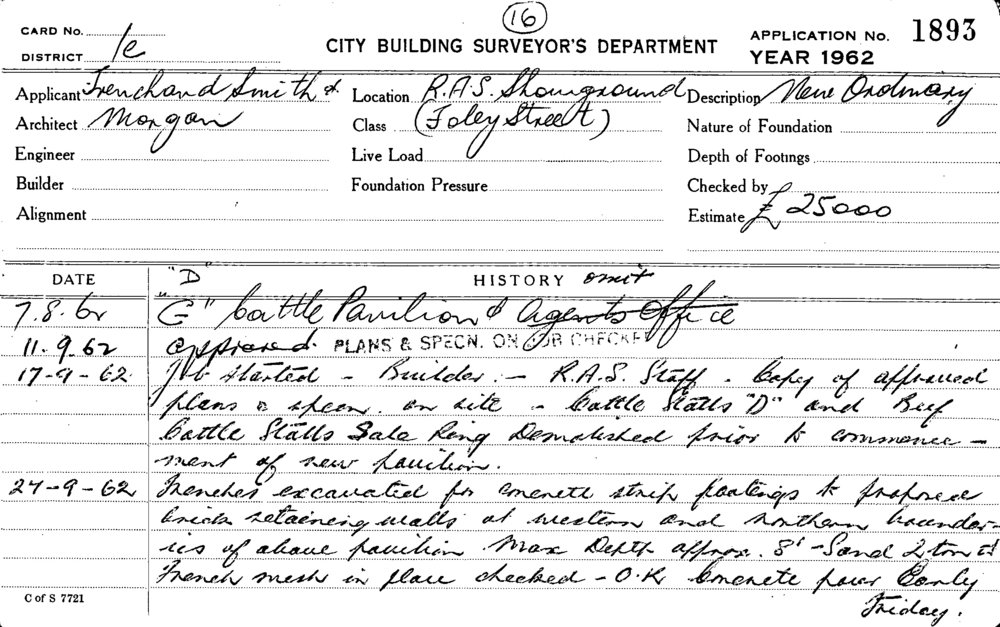 16
CARD No.
DISTRICT 1e
CITY BUILDING SURVEYOR'S DEPARTMENT
APPLICATION No. 1893
YEAR 1962
Applicant Trenchard Smith &
Architect Morgan
Engineer
Builder
Alignment
Location R.A.S. Showground
Class (Foley Street)
Live Load
Foundation Pressure
Description New Ordinary
Nature of Foundation
Depth of Footings
Checked by
Estimate £ 25000
DATE HISTORY
"D" omit
7.8.62 "G" Cattle Pavilion & Agents Office
11.9.62 approved. PLANS & SPECN. ON JOB CHECKED
17-9-62 Job started - Builder - R.A.S. Staff - Copy of approved
plans & specn. on site - Cattle Stalls "D" and Beef
Cattle Stalls Sale Ring Demolished prior to commence-
ment of new pavilion.
27-9-62 Trenches excavated for concrete strip footings to proposed
brick retaining walls at western and northern boundar-
ies of above pavilion Max Depth approx. 8' - Sand 2 ton
Trench mesh in place checked - O.K Concrete pour Early
Friday.
C of S 7721